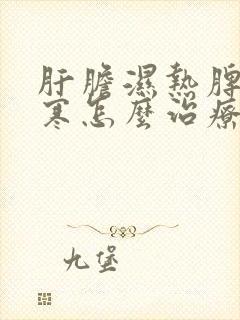 肝膽濕熱脾
寒怎麼治療
九堡